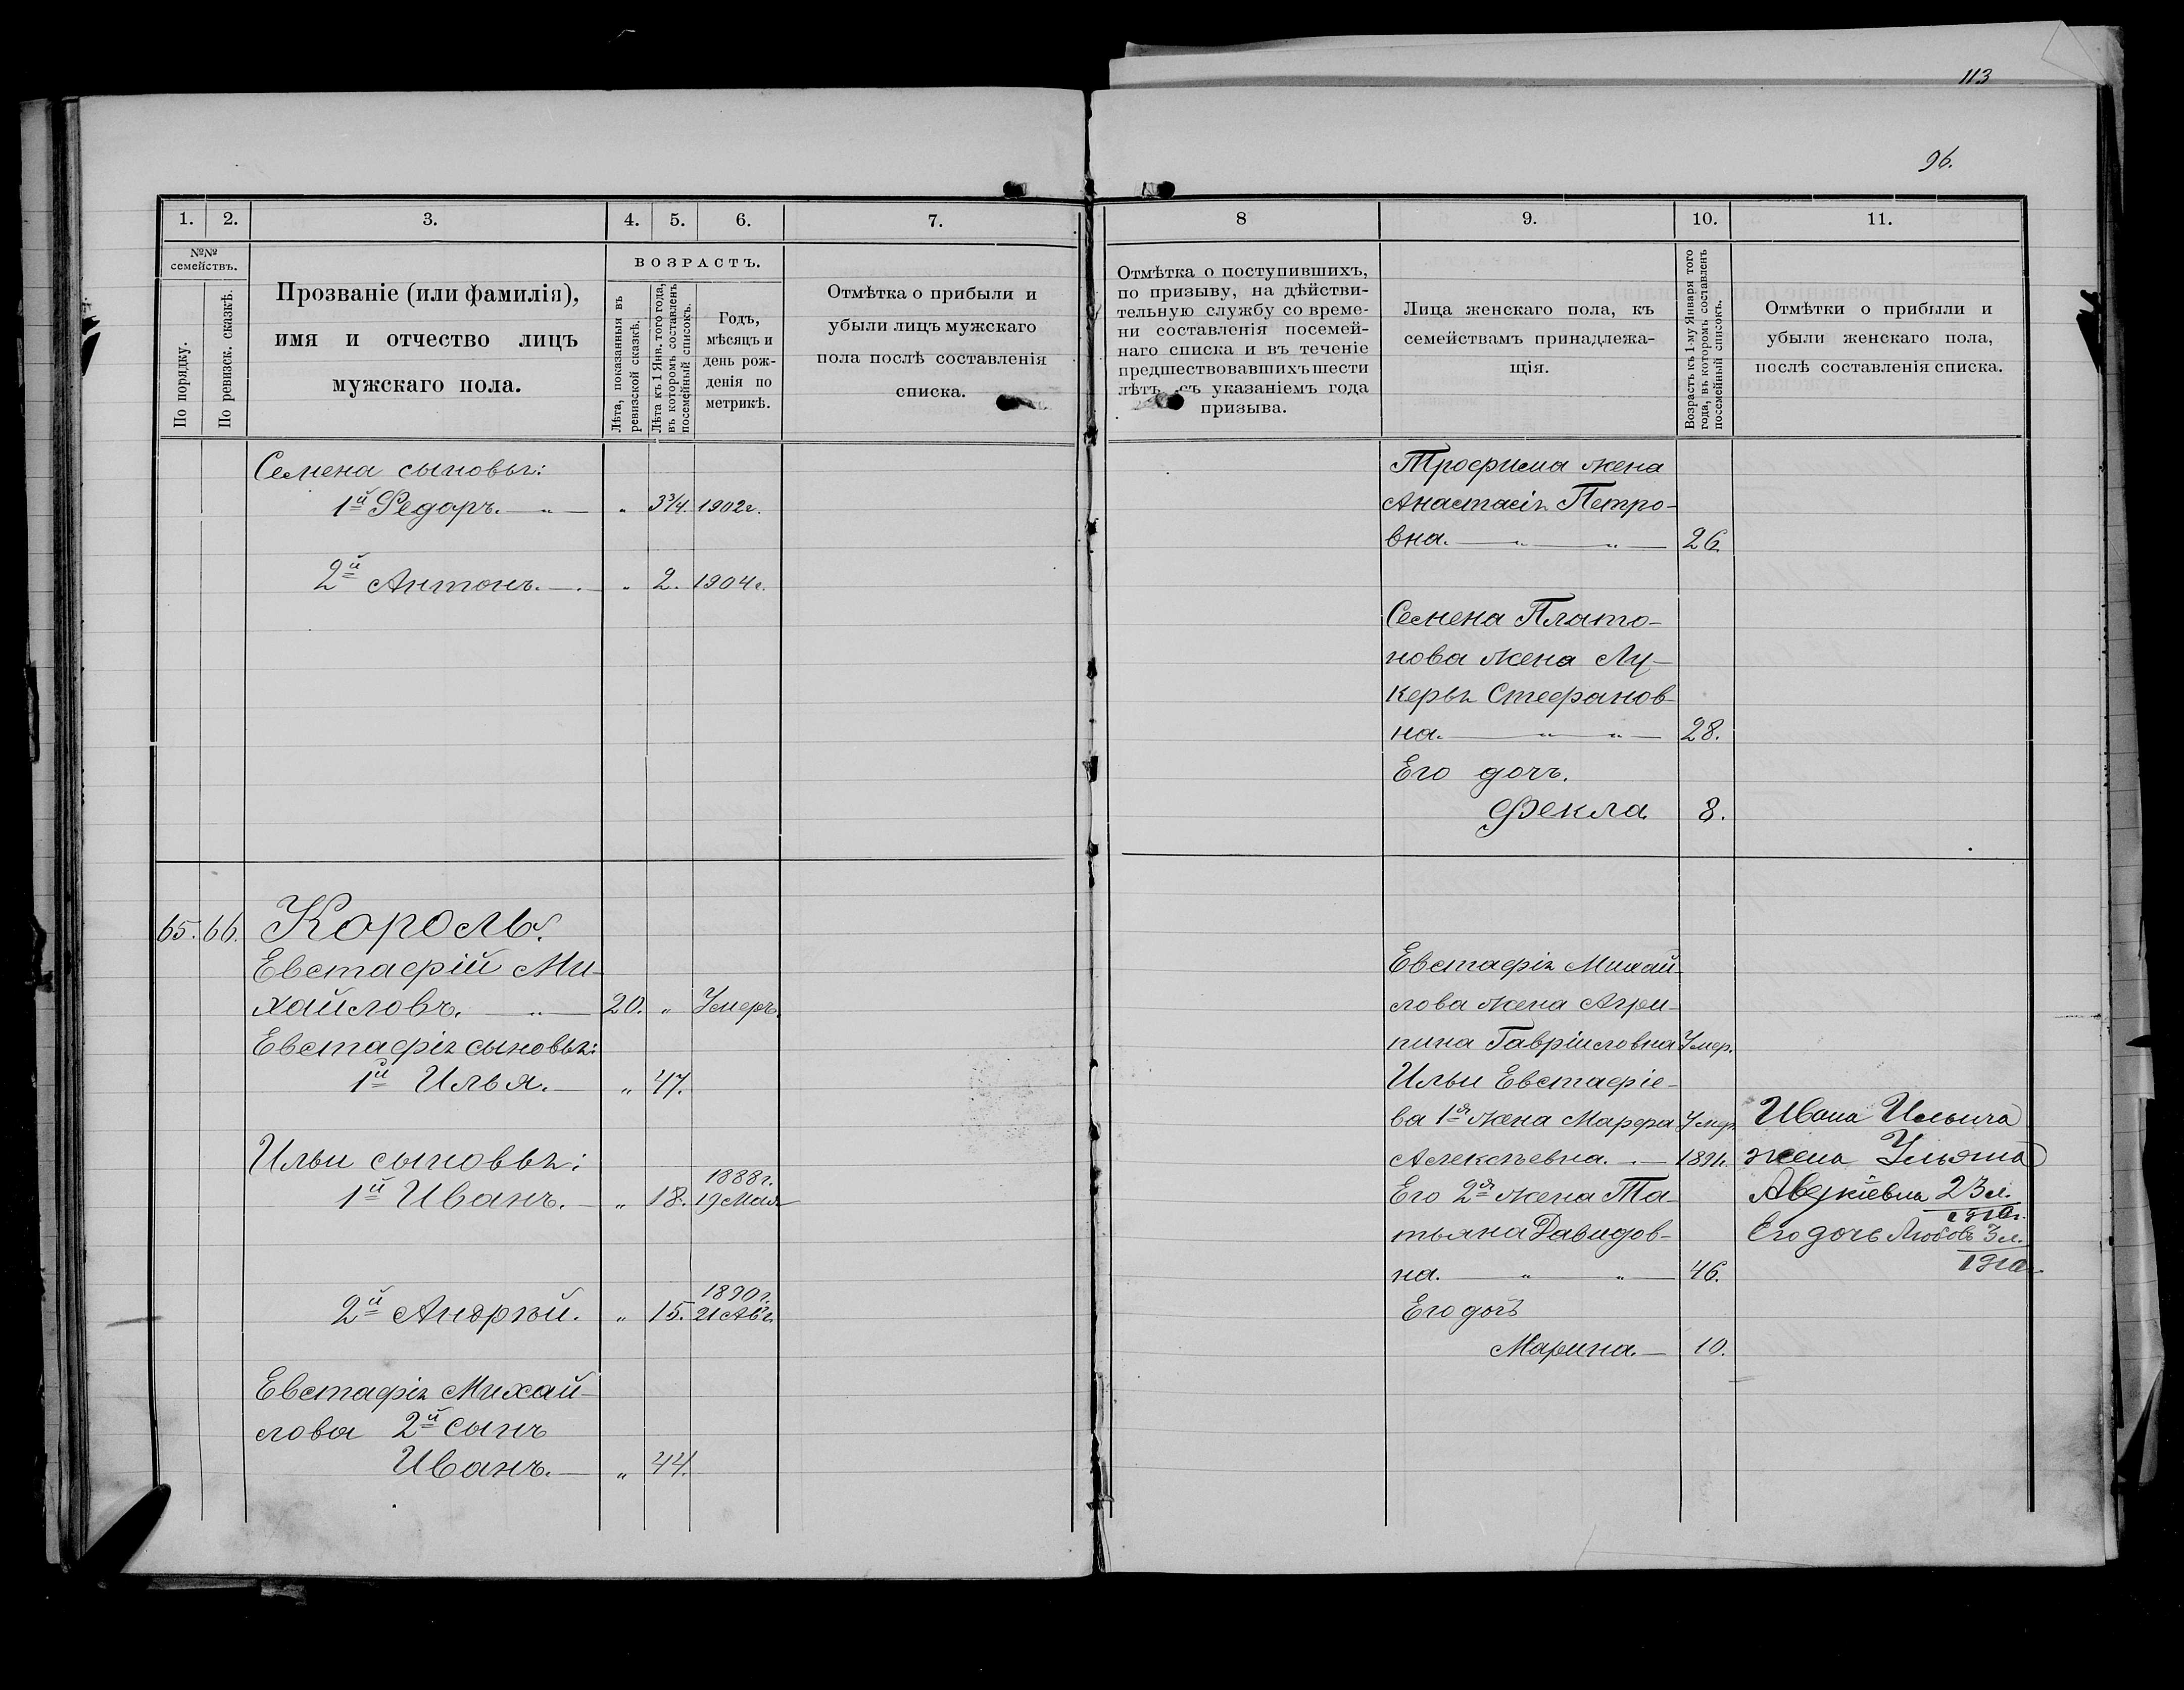 113
96.
1.
2.
3.
4.
5.
6.
7.
№№
семействъ.
По порядку.
По ревизск. сказкѣ.
Прозваніе (или фамилія),
имя и отчество лицъ
мужскаго пола.
ВОЗРАСТЪ.
Лѣта, показанныя въ
ревизской сказкѣ.
Лѣта къ 1 Янв. того года,
въ которомъ составленъ
посемейный списокъ.
Годъ,
мѣсяцъ и
день рож-
денія по
метрикѣ.
Отмѣтка о прибыли и
убыли лицъ мужскаго
пола послѣ составленія
списка.
Семена сыновья:
1й Федоръ. — „ — „ 3¾. 1902г.
2й Антонъ. — . „ 2. 1904г.
65. 66. Король.
Евстафій Ми-
хайловъ. — „ — 20. „ Умеръ.
Евстафія сыновья:
1й Илья. — „ 47.
Ильи сыновья:
1888г.
1й Иванъ. — „ 18. 19 Мая
1890г.
2й Андрѣй. „ 15. 21 Авг.
Евстафія Михай-
лова 2й сынъ
Иванъ. — „ 44.
8
9.
10.
11.
Отмѣтка о поступившихъ,
по призыву, на дѣйстви-
тельную службу со време-
ни составленія посемей-
наго списка и въ теченіе
предшествовавшихъ шести
лѣтъ, съ указаніемъ года
призыва.
Лица женскаго пола, къ
семействамъ принадлежа-
щія.
Возрастъ къ 1-му Января того
года, въ которомъ составленъ
посемейный списокъ.
Отмѣтки о прибыли и
убыли женскаго пола,
послѣ составленія списка.
Трофима жена
Анастасія Петро-
вна. — „ — „ — 26.
Семена Плато-
нова жена Лу-
керья Стефанов-
на. — „ — „ — 28.
Его дочь.
Фекла 8.
Евстафія Михай-
лова жена Агри-
пина Гавріиловна Умер.
Ильи Евстафіе-
ва 1я жена Марфа Умер.
Алексѣевна. — . — 1891г.
Его 2я жена Та-
тьяна Давидов-
на. — „ — „ — 46.
Его дочь
Марина. — 10.
Ивана Ильича
жена Ульяна
Авекіевна 23 л.
1910г.
Его дочь Любовь 3 л.
1910